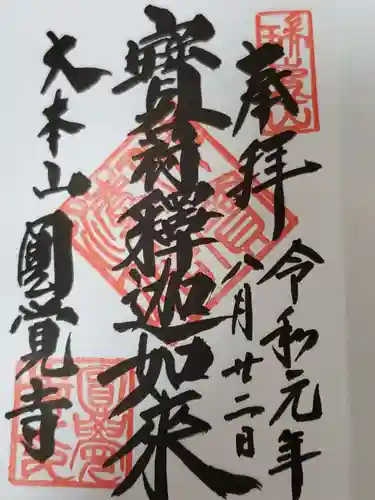 奉拝
令和元年
八月廿二日
寶冠釋迦如来
大本山圓覺寺
瑞鹿山